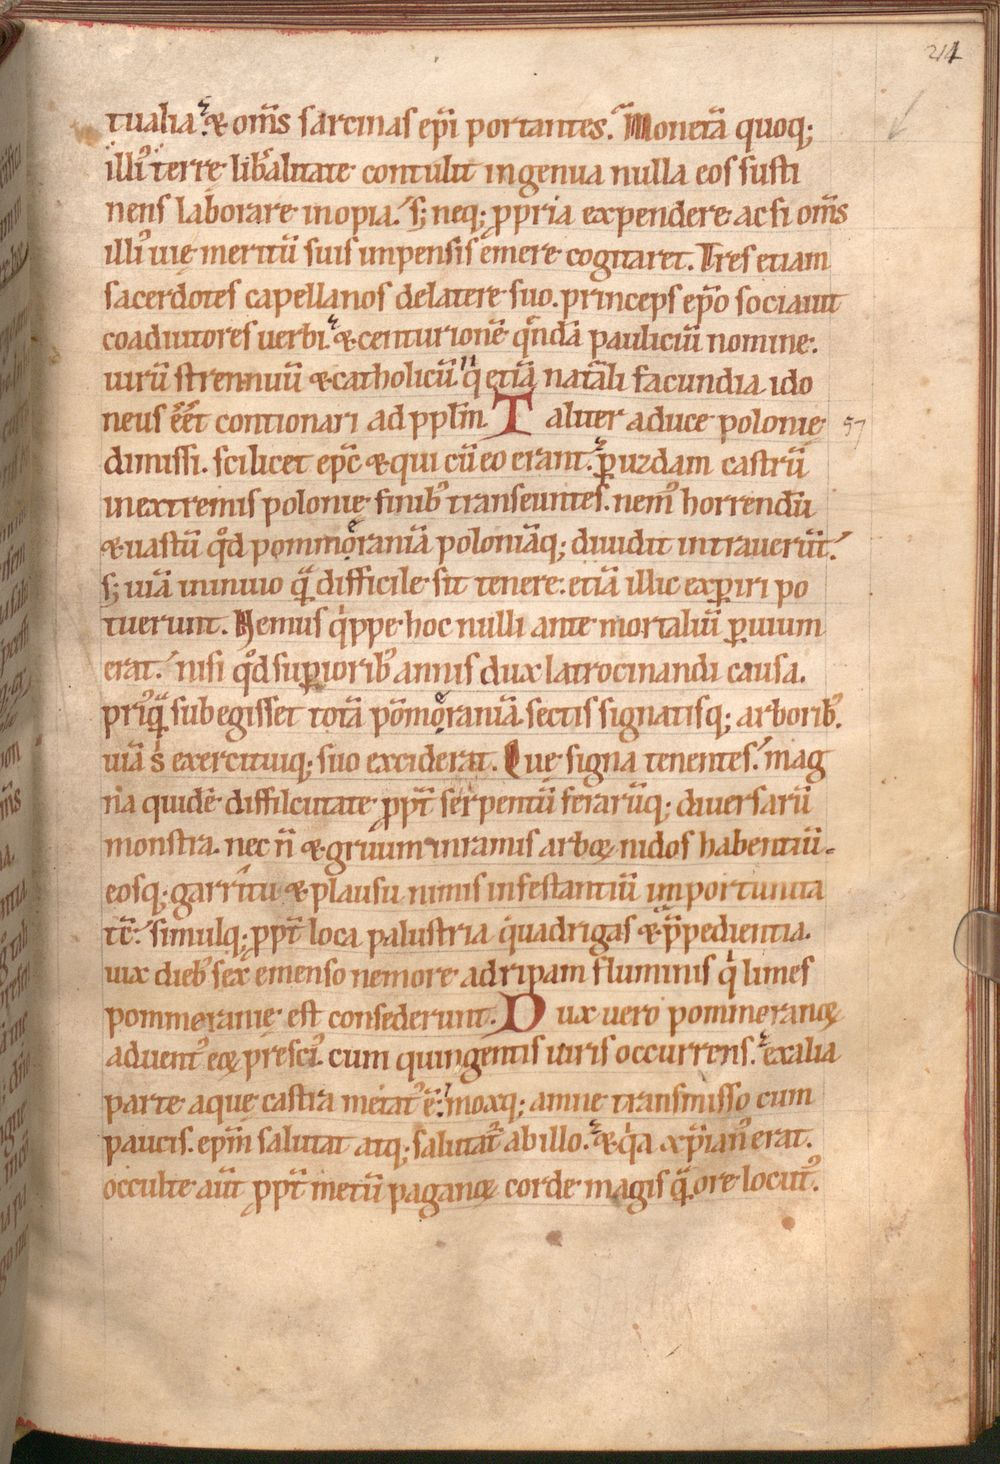 214
tualia. & om̅s sarcinas ep̅i portantes. Moneta̅ quoq;
illi᷒ terre lib̅alitate contulit ingenua nulla eos susti
nens laborare inopia. s; neq; ꝓpria expendere ac si om̅s
illi᷒ uię meritu̅ suis impensis emere cogitaret. Tres etiam
sacerdotes capellanos de latere suo. princeps ep̅o sociauit
coadiutores uerbi. & centurione̅ qͦnda̅ paulicium nomine.
uiru̅ strennuu̅ & catholicu̅ q̅ etia̅ nat̅ali facundia ido
neus e̅e̅t contionari ad ppl̅m. Taliter a duce polonię
57
dimissi. scilicet ep̅c & qui cu̅ eo erant. ꝑ uzdam castru̅
in extremis polonię finib᷒ transeuntes. nem᷒ horrendu̅
& uastu̅ qͦd pommoͤrania̅ polonia̅q; diuidit intraueru̅t.
s; uia̅ in inuio qͣ̅ difficile sit tenere. etia̅ illic experiri po
tuerunt. Nemus qͥppe hoc nulli ante mortaliu̅ ꝑuium
erat. nisi qͦd superiorib᷒ annis dux latrocinandi causa.
pri᷒qͣ̅ subegisset tota̅ po̅moͤrania̅ sectis signatisq; arborib᷒.
uia̅ s̍ exercituiq; suo exciderat. Que signa tenentes. mag
na quide̅ diffilcutate ꝓpt̅ serpentu̅ feraru̅q; diuersaru̅
monstra. nec n̅ & gruum in ramis arboꝝ nidos habentiu̅.
eosq; garritu & plausu nimis infestantiu̅ importunita
te̅. simulq; ꝓpt̅ loca palustria quadrigas & p̅pedientia.
uix dieb᷒ sex emenso nemore ad ripam fluminis qͥ limes
pommeranię est consederunt. Dux uero pommeranoꝝ
aduent᷒ eoꝝ presci᷒. cum quingentis uiris occurrens. ex alia
parte aquę castra metat᷒ e̅. moxq; amne transmisso cum
paucis. ep̅m salutat atq; salutat̅ ab illo. & qͥa xp̅ian᷒ erat.
occulte au̅t ꝓpt̅ metu̅ paganoꝝ corde magis qͣ̅ ore locut᷒.